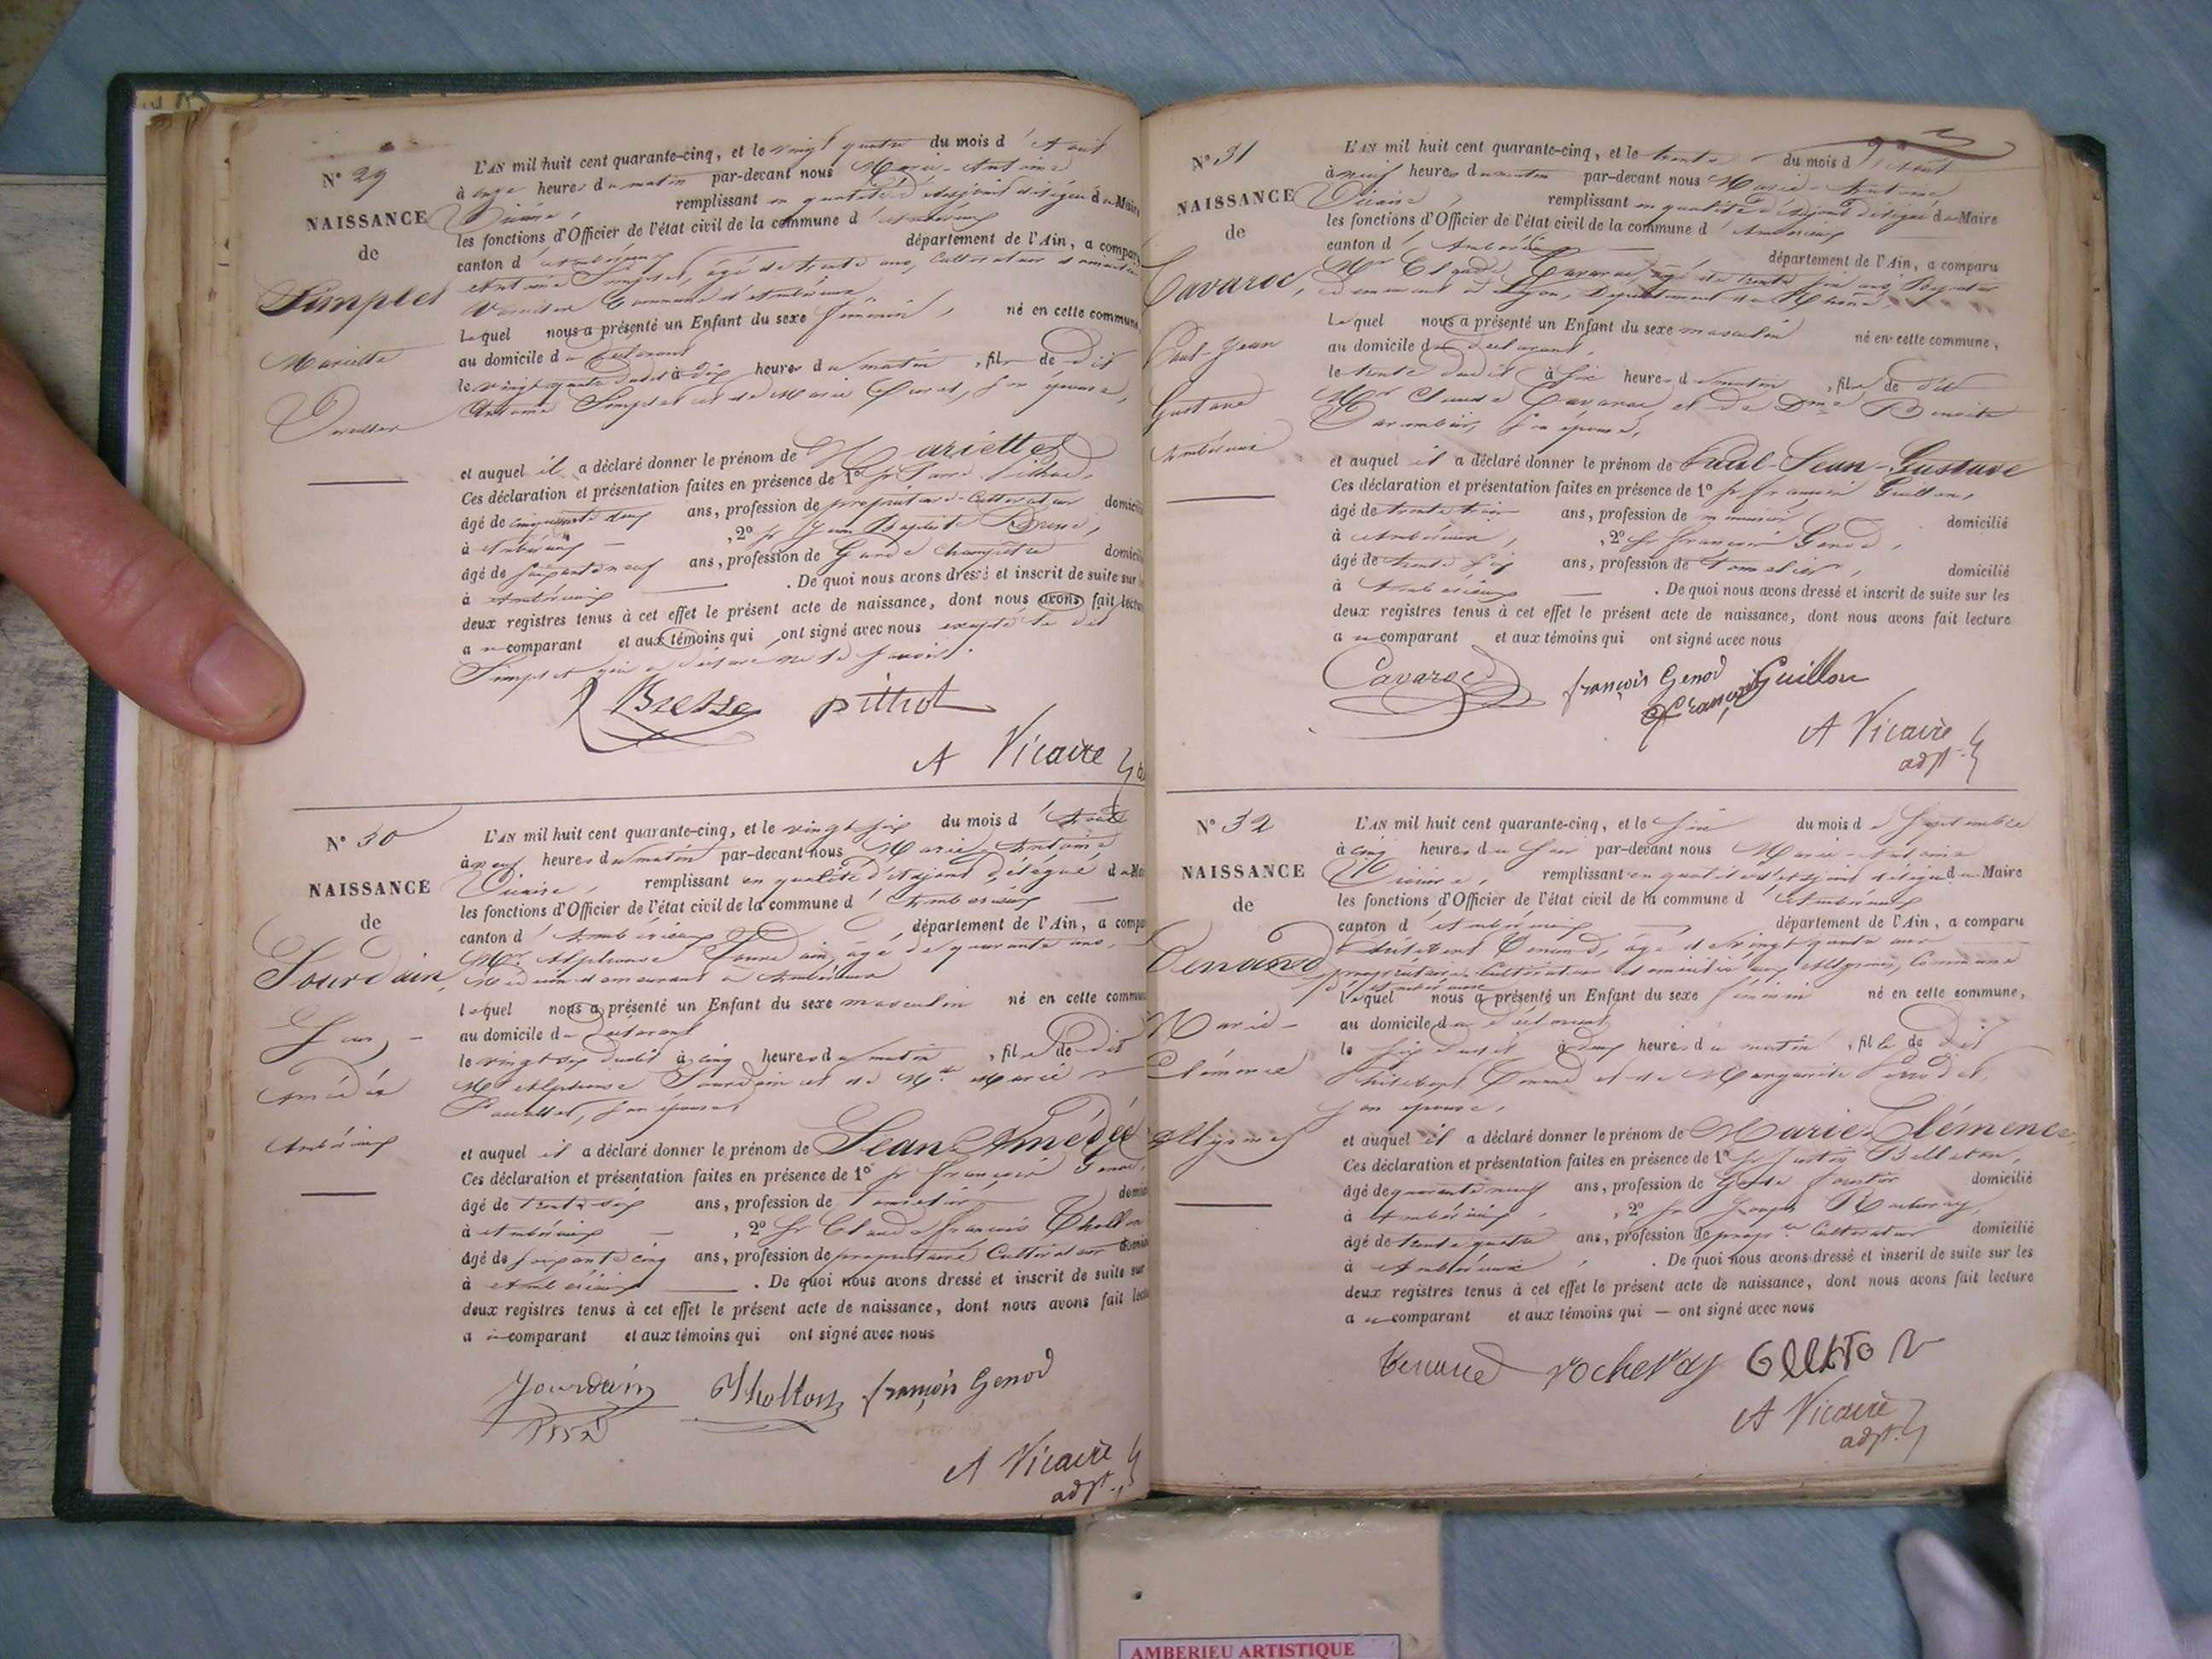 N° 29
NAISSANCE
de
Simplet
Mariette
L'AN mil huit cent quarante-cinq, et le vingt quatre du mois d'Aout
à onze heures du matin par-devant nous Marie-Antoine
Vicaire, remplissant en qualité d'adjoint délégué du Maire
les fonctions d'Officier de l'état civil de la commune d'Ambérieux
canton d'Ambérieux département de l'Ain, a comparu
Antoine Simplet, âgé de trente ans, Cultivateur
Commune d'Ambérieux
lequel nous a présenté un Enfant du sexe féminin, né en cette commune
au domicile du déclarant
le vingt quatre dudit à dix heures du matin, fil de dit
Antoine Simplet et de Marie son épouse,
et auquel il a déclaré donner le prénom de Mariette
Ces déclaration et présentation faites en présence de 1° Sr
âgé de cinquante deux ans, profession de propriétaire-Cultivateur domicilié
à Ambérieux 2° Sr Jean Baptiste Bresse,
âgé de soixante neuf ans, profession de Garde Champêtre domicilié
à Ambérieux. De quoi nous avons dressé et inscrit de suite sur
deux registres tenus à cet effet le présent acte de naissance, dont nous avons fait lecture
au comparant et aux témoins qui ont signé avec nous excepté le dit
Simplet qui a déclaré ne le savoir.
Bresse pithiot
A Vicaire
N° 30
NAISSANCE
de
Jourdain,
Jean-
Amédée
Ambérieux
L'AN mil huit cent quarante-cinq, et le vingt six du mois d'Aout
à neuf heures du matin par-devant nous Marie-Antoine
Vicaire, remplissant en qualité d'Adjoint délégué du Maire
les fonctions d'Officier de l'état civil de la commune d'Ambérieux
canton d'Ambérieux, département de l'Ain, a comparu
Mr Alphonse Jourdain, âgé de quarante ans,
Médecin demeurant à Ambérieux
lequel nous a présenté un Enfant du sexe masculin né en cette commune
au domicile du déclarant
le vingt six dudit à cinq heures du matin, fils de dit
Mr Alphonse Jourdain et de Marie
son épouse,
et auquel il a déclaré donner le prénom de Jean-Amédée
Ces déclaration et présentation faites en présence de 1° Sr François Genod,
âgé de trente six ans, profession de tonnelier domicilié
à Ambérieux, 2° Sr Claude François Thollon
âgé de soixante cinq ans, profession de propriétaire Cultivateur domicilié
à Ambérieux. De quoi nous avons dressé et inscrit de suite sur
deux registres tenus à cet effet le présent acte de naissance, dont nous avons fait lecture
au comparant et aux témoins qui ont signé avec nous
Jourdain Thollon françois Genod
A Vicaire
adjt.
N° 31
NAISSANCE
de
Cavaroc,
Paul-Jean
Gustave
Ambérieux
L'AN mil huit cent quarante-cinq, et le trente du mois d'Aout
à neuf heures du matin par-devant nous Marie-Antoine
Vicaire, remplissant en qualité d'Adjoint délégué du Maire
les fonctions d'Officier de l'état civil de la commune d'Ambérieux
canton d'Ambérieux, département de l'Ain, a comparu
Mr Claude Cavaroc, âgé de trente six ans,
demeurant à Lyon, Département du Rhône,
lequel nous a présenté un Enfant du sexe masculin né en cette commune,
au domicile du déclarant,
le trente dudit à six heures du matin, fils de dit
Mr Claude Cavaroc, et de Dme Benoite
son épouse,
et auquel il a déclaré donner le prénom de Paul-Jean-Gustave
Ces déclaration et présentation faites en présence de 1° Sr françois Guillon,
âgé de trente trois ans, profession de menuisier domicilié
à Ambérieux, 2° Sr françois Genod,
âgé de trente six ans, profession de tonnelier, domicilié
à Ambérieux. De quoi nous avons dressé et inscrit de suite sur les
deux registres tenus à cet effet le présent acte de naissance, dont nous avons fait lecture
au comparant et aux témoins qui ont signé avec nous
Cavaroc françois Genod françois Guillon
A Vicaire
adjt.
N° 32
NAISSANCE
de
Tenand
Marie-
Clémence
Allymes
L'AN mil huit cent quarante-cinq, et le six du mois de Septembre
à cinq heures du soir par-devant nous Marie-Antoine
Vicaire, remplissant en qualité d'adjoint délégué du Maire
les fonctions d'Officier de l'état civil de la commune d'Ambérieux
canton d'Ambérieux, département de l'Ain, a comparu
Tenand, âgé de vingt quatre ans
propriétaire-Cultivateur domicilié aux Allymes, Commune
d'Ambérieux
lequel nous a présenté un Enfant du sexe féminin né en cette commune,
au domicile du déclarant
le six dudit à heures du matin, fille de dit
Tenand et de Marguerite
son épouse,
et auquel il a déclaré donner le prénom de Marie-Clémence
Ces déclaration et présentation faites en présence de 1° Sr Belleton,
âgé de quarante neuf ans, profession de Garde forestier domicilié
à Ambérieux, 2° Sr Joseph
âgé de trente quatre ans, profession de propre Cultivateur domicilié
à Ambérieux. De quoi nous avons dressé et inscrit de suite sur les
deux registres tenus à cet effet le présent acte de naissance, dont nous avons fait lecture
au comparant et aux témoins qui — ont signé avec nous
Tenand rochevay
A Vicaire
adjt.
AMBERIEU ARTISTIQUE